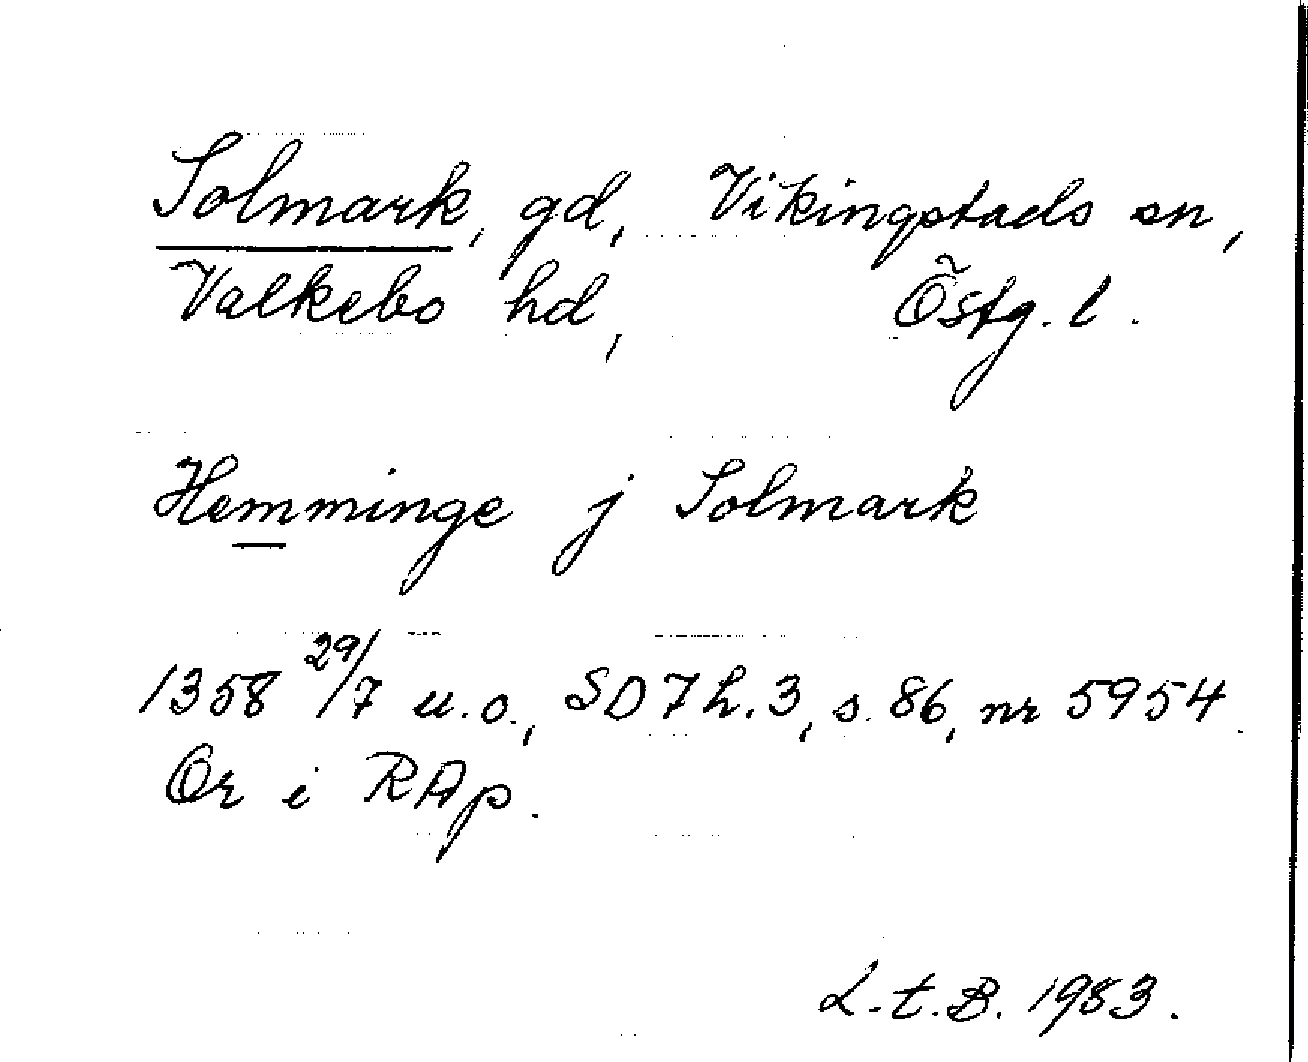 Solmark, gd, Vikingstads sn,
Valkebo hd, Östg. l.
Hemminge j Solmark
1358 29/7 u.o., SD 7 h. 3, s. 86, nr 5954.
Or i RAp.
L.t.B. 1983.